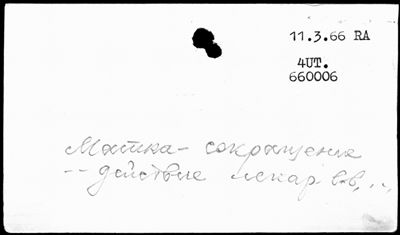 11.3.66 RA
4UT.
660006
Матка – сокращение
-- действие лекар. в-в, ..,